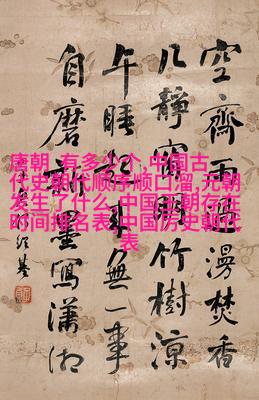 空齋雨漫焚香
几靜竹樹涼
午睡來無一事
自磨墨寫瀟湘
唐朝,有多少个,中国古
代史朝代顺序顺口溜,元朝
发生了什么,中国王朝存在
时间排名表,中国历史朝代
表